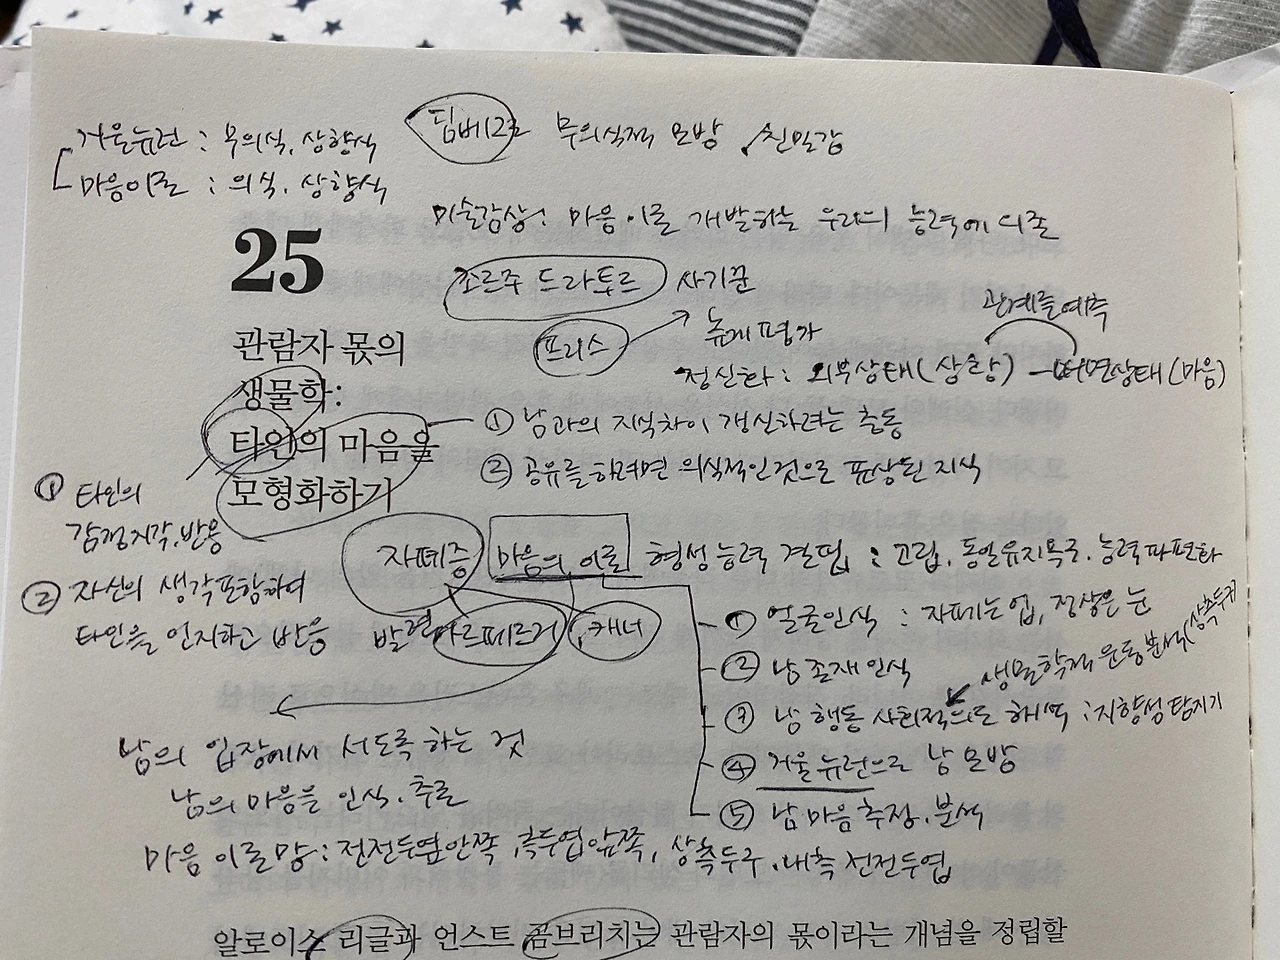 거울뉴런 : 무의식, 상향식
마음이론 : 의식, 상향식
팀베르겐 무의식적 모방, 친밀감
미술감상 : 마음 이론 개발하는 우리의 능력에 의존
25
조르주 드라투르 사기꾼
프리스 뉴게 평가
관계를 예측
정신화 : 외부상태(상황) 내면상태(마음)
관람자 몫의
생물학:
타인의 마음을
모형화하기
① 남과의 지식차이 갱신하려는 충동
② 공유를 하려면 의식적인것으로 표상된 지식
① 타인의
감정지각, 반응
② 자신의 생각포함하여
타인을 인지하고 반응
자폐증 마음의 이론 형성 능력 결핍 : 고립, 동일유지욕구, 능력파편화
발견 아스퍼거, 캐너
① 얼굴인식 : 자폐는 입, 정상은 눈
② 남 존재 인식
생물학적 운동분석(상측두구)
③ 남 행동 사회적 의도 해석 : 지향성 탐지기
④ 거울 뉴런으로 남 모방
⑤ 남 마음 추정, 분석
남의 입장에서 서도록 하는 것
남의 마음을 인식, 추론
마음 이론 망 : 전전두엽안쪽, 측두엽앞쪽, 상측두구, 내측 전전두엽
알로이스 리글과 언스트 곰브리치는 관람자의 몫이라는 개념을 정립할